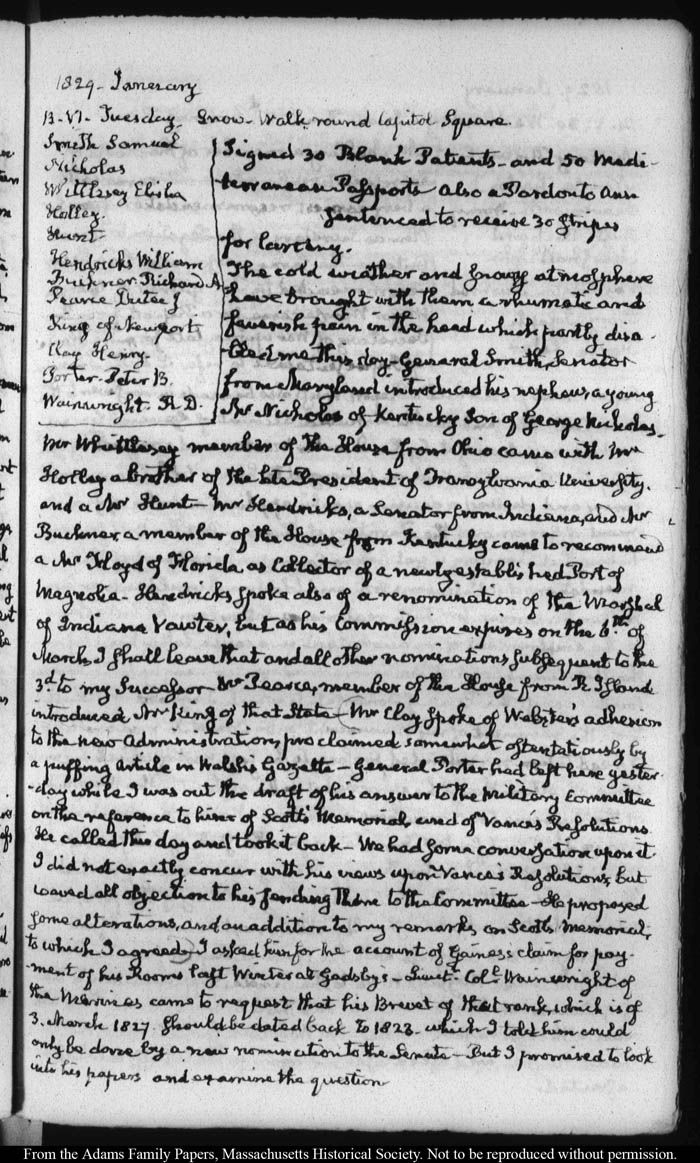 1829. January
13. VI. Tuesday. Snow. Walk round Capitol Square.
Smith Samuel
Nicholas
Wittlesey Elisha
Holley.
Hunt.
Hendricks William
Buckner Richard A.
Pearce Dutee J
King of Newport
Clay Henry.
Porter. Peter B.
Wainwright. R. D.
Signed 30 Blank Patents and 50 Medi-
terranean Passports also a Pardon to Ann
sentenced to receive 30 Stripes
for larceny.
The cold weather and Snowy atmosphere
have brought with them a rhumatic and
feverish pain in the head which partly disa-
bled me this day. General Smith, Senator
from Maryland introduced his nephew, a young
Mr Nicholas of Kentucky Son of George Nicholas.
Mr Whittlesey member of the House from Ohio came with Mr
Holley a brother of the late President of Transylvania University.
and a Mr Hunt. Mr Hendricks, a Senator from Indiana, and Mr
Buckner a member of the House from Kentucky came to recommend
a Mr Floyd of Florida, as Collector of a newly established Port of
Magnolia. Hendricks spoke also of a renomination of the Marshal
of Indiana Vawter, but as his Commission expires on the 6th. of
March I shall leave that and all other nominations subsequent to the
3.d to my Successor. Mr Pearce, member of the House from R. Island
introduced Mr King of that State. Mr Clay spoke of Webster's adhesion
to the new Administration, proclaimed somewhat ostentatiously by
a puffing Article in Walsh's Gazette. General Porter had left here yester-
day while I was out the draft of his answer to the Military Committee
on the reference to him of Scott's Memorial, and of Vance's Resolutions.
He called this day and took it back. We had some conversation upon it.
I did not exactly concur with his views upon Vance's Resolutions, but
waved all objection to his sending them to the Committee. He proposed
some alterations, and an addition to my remarks on Scott's Memorial,
to which I agreed. I asked him for the account of Gaines's claim for pay-
ment of his Rooms last Winter at Gadsby's. Lieutt. Coll. Wainwright of
the Marines came to request that his Brevet of that rank, which is of
3. March 1827. should be dated back to 1823. which I told him could
only be done by a new nomination to the Senate. But I promised to look
into his papers and examine the question
From the Adams Family Papers, Massachusetts Historical Society. Not to be reproduced without permission.